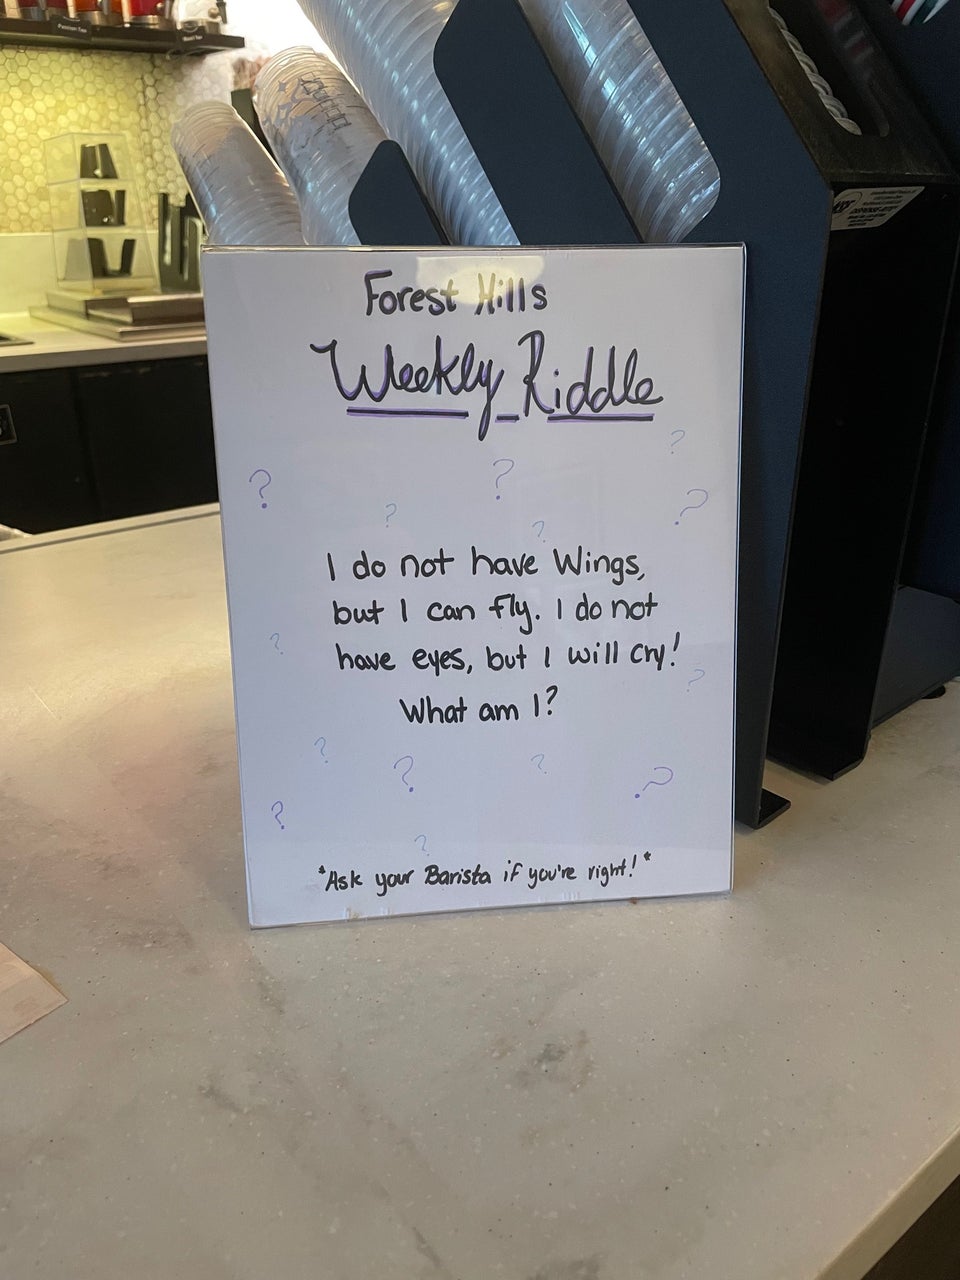 Passion Tea
Forest Hills
Weekly Riddle
I do not have Wings,
but I can fly. I do not
have eyes, but I will cry!
What am I?
*Ask your Barista if you're right!*